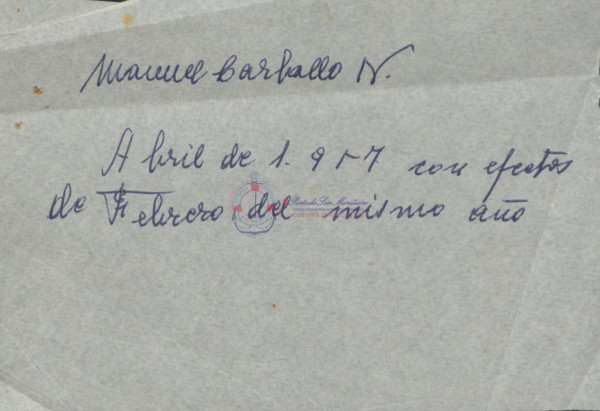 Manuel Carballo N.
Abril de 1.957 con efectos
de Febrero, del mismo año